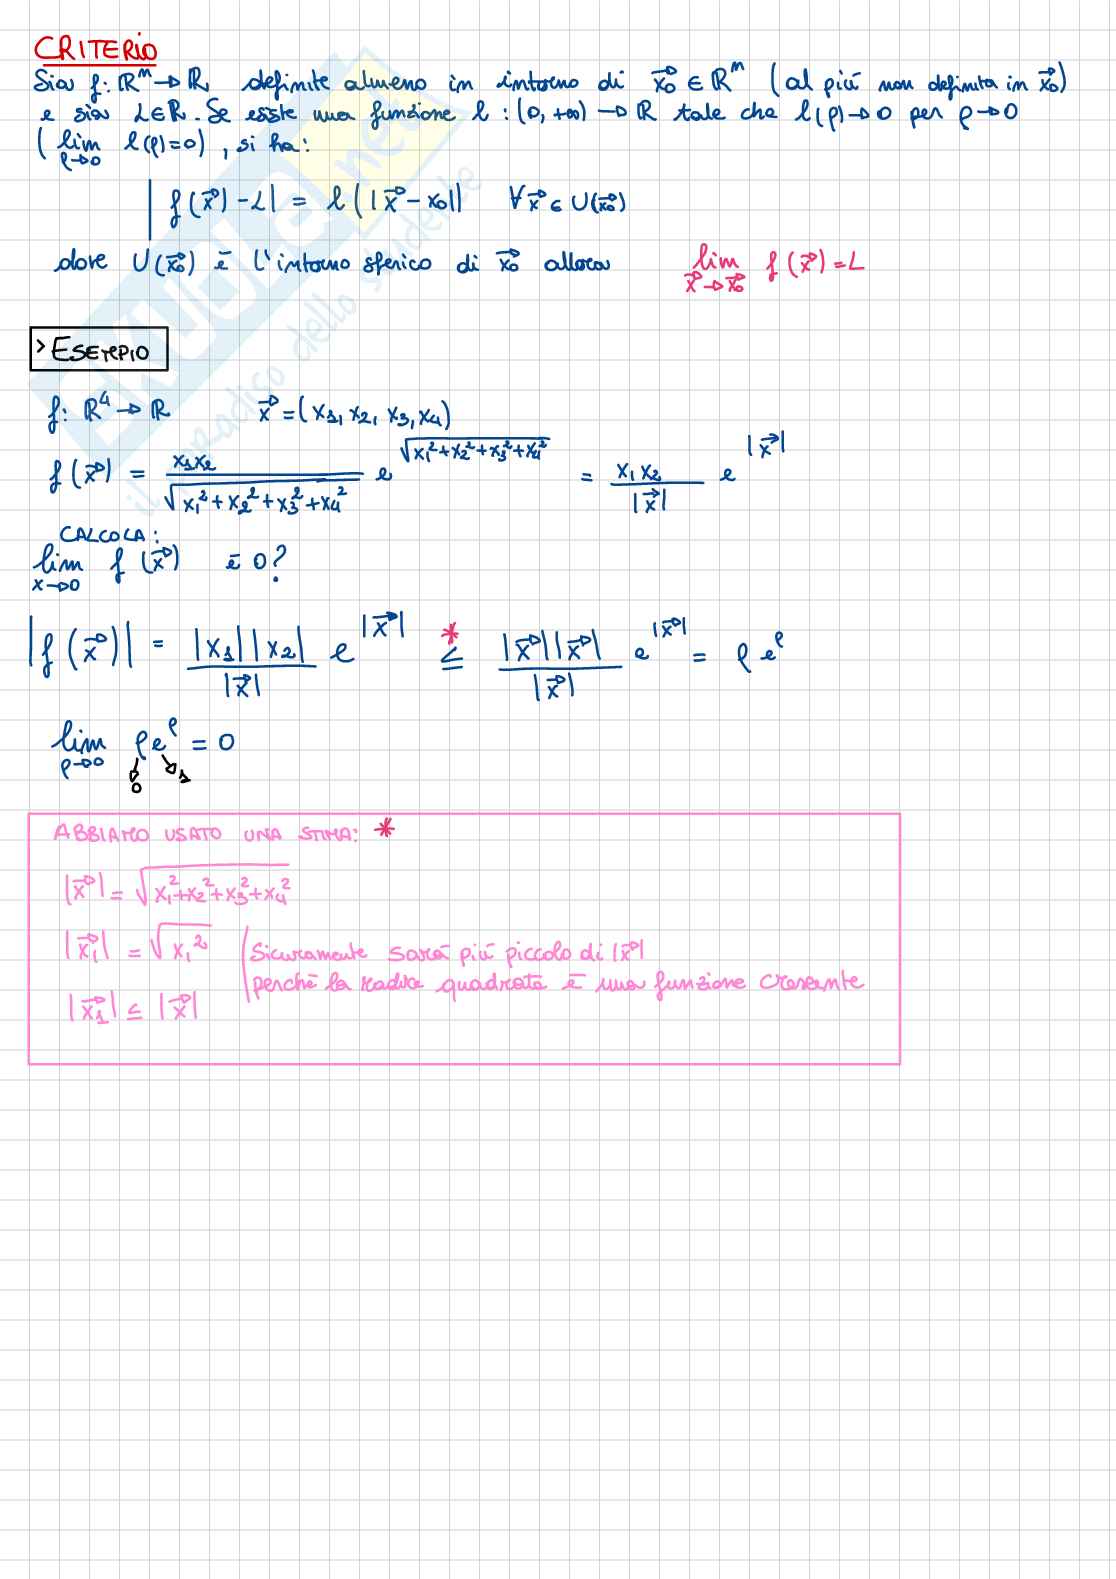 CRITERIO
Sia f: ℝⁿ → ℝ, definite almeno in intorno di x⃗₀ ∈ ℝⁿ (al più non definita in x⃗₀)
e sia L∈ℝ. Se esste una funzione l : (0, +∞) → ℝ tale che l(ρ)→0 per ρ→0
(lim_{ρ→0} l(ρ)=0), si ha:
|f(x⃗) - L| = l(|x⃗ - x₀|) ∀x⃗ ∈ U(x⃗₀)
dove U(x⃗₀) è l'intorno sferico di x⃗₀ allora lim_{x⃗→x⃗₀} f(x⃗) = L
> ESEMPIO
f: ℝ⁴ → ℝ x⃗ = (x₁, x₂, x₃, x₄)
f(x⃗) = x₁x₂ / √(x₁² + x₂² + x₃² + x₄²) e^{√(x₁² + x₂² + x₃² + x₄²)} = x₁x₂ / |x⃗| e^{|x⃗|}
CALCOLA:
lim_{x→0} f(x⃗) è 0?
|f(x⃗)| = |x₁||x₂| / |x⃗| e^{|x⃗|} ≤* |x⃗||x⃗| / |x⃗| e^{|x⃗|} = ρ e^ρ
lim_{ρ→0} ρe^ρ = 0
0 1
ABBIAMO USATO UNA STIMA: *
|x⃗| = √(x₁²+x₂²+x₃²+x₄²)
|x⃗₁| = √(x₁²) Sicuramente sarà più piccolo di |x⃗|
perchè la radice quadrata è una funzione crescente
|x⃗₁| ≤ |x⃗|
il paradiso dello studente